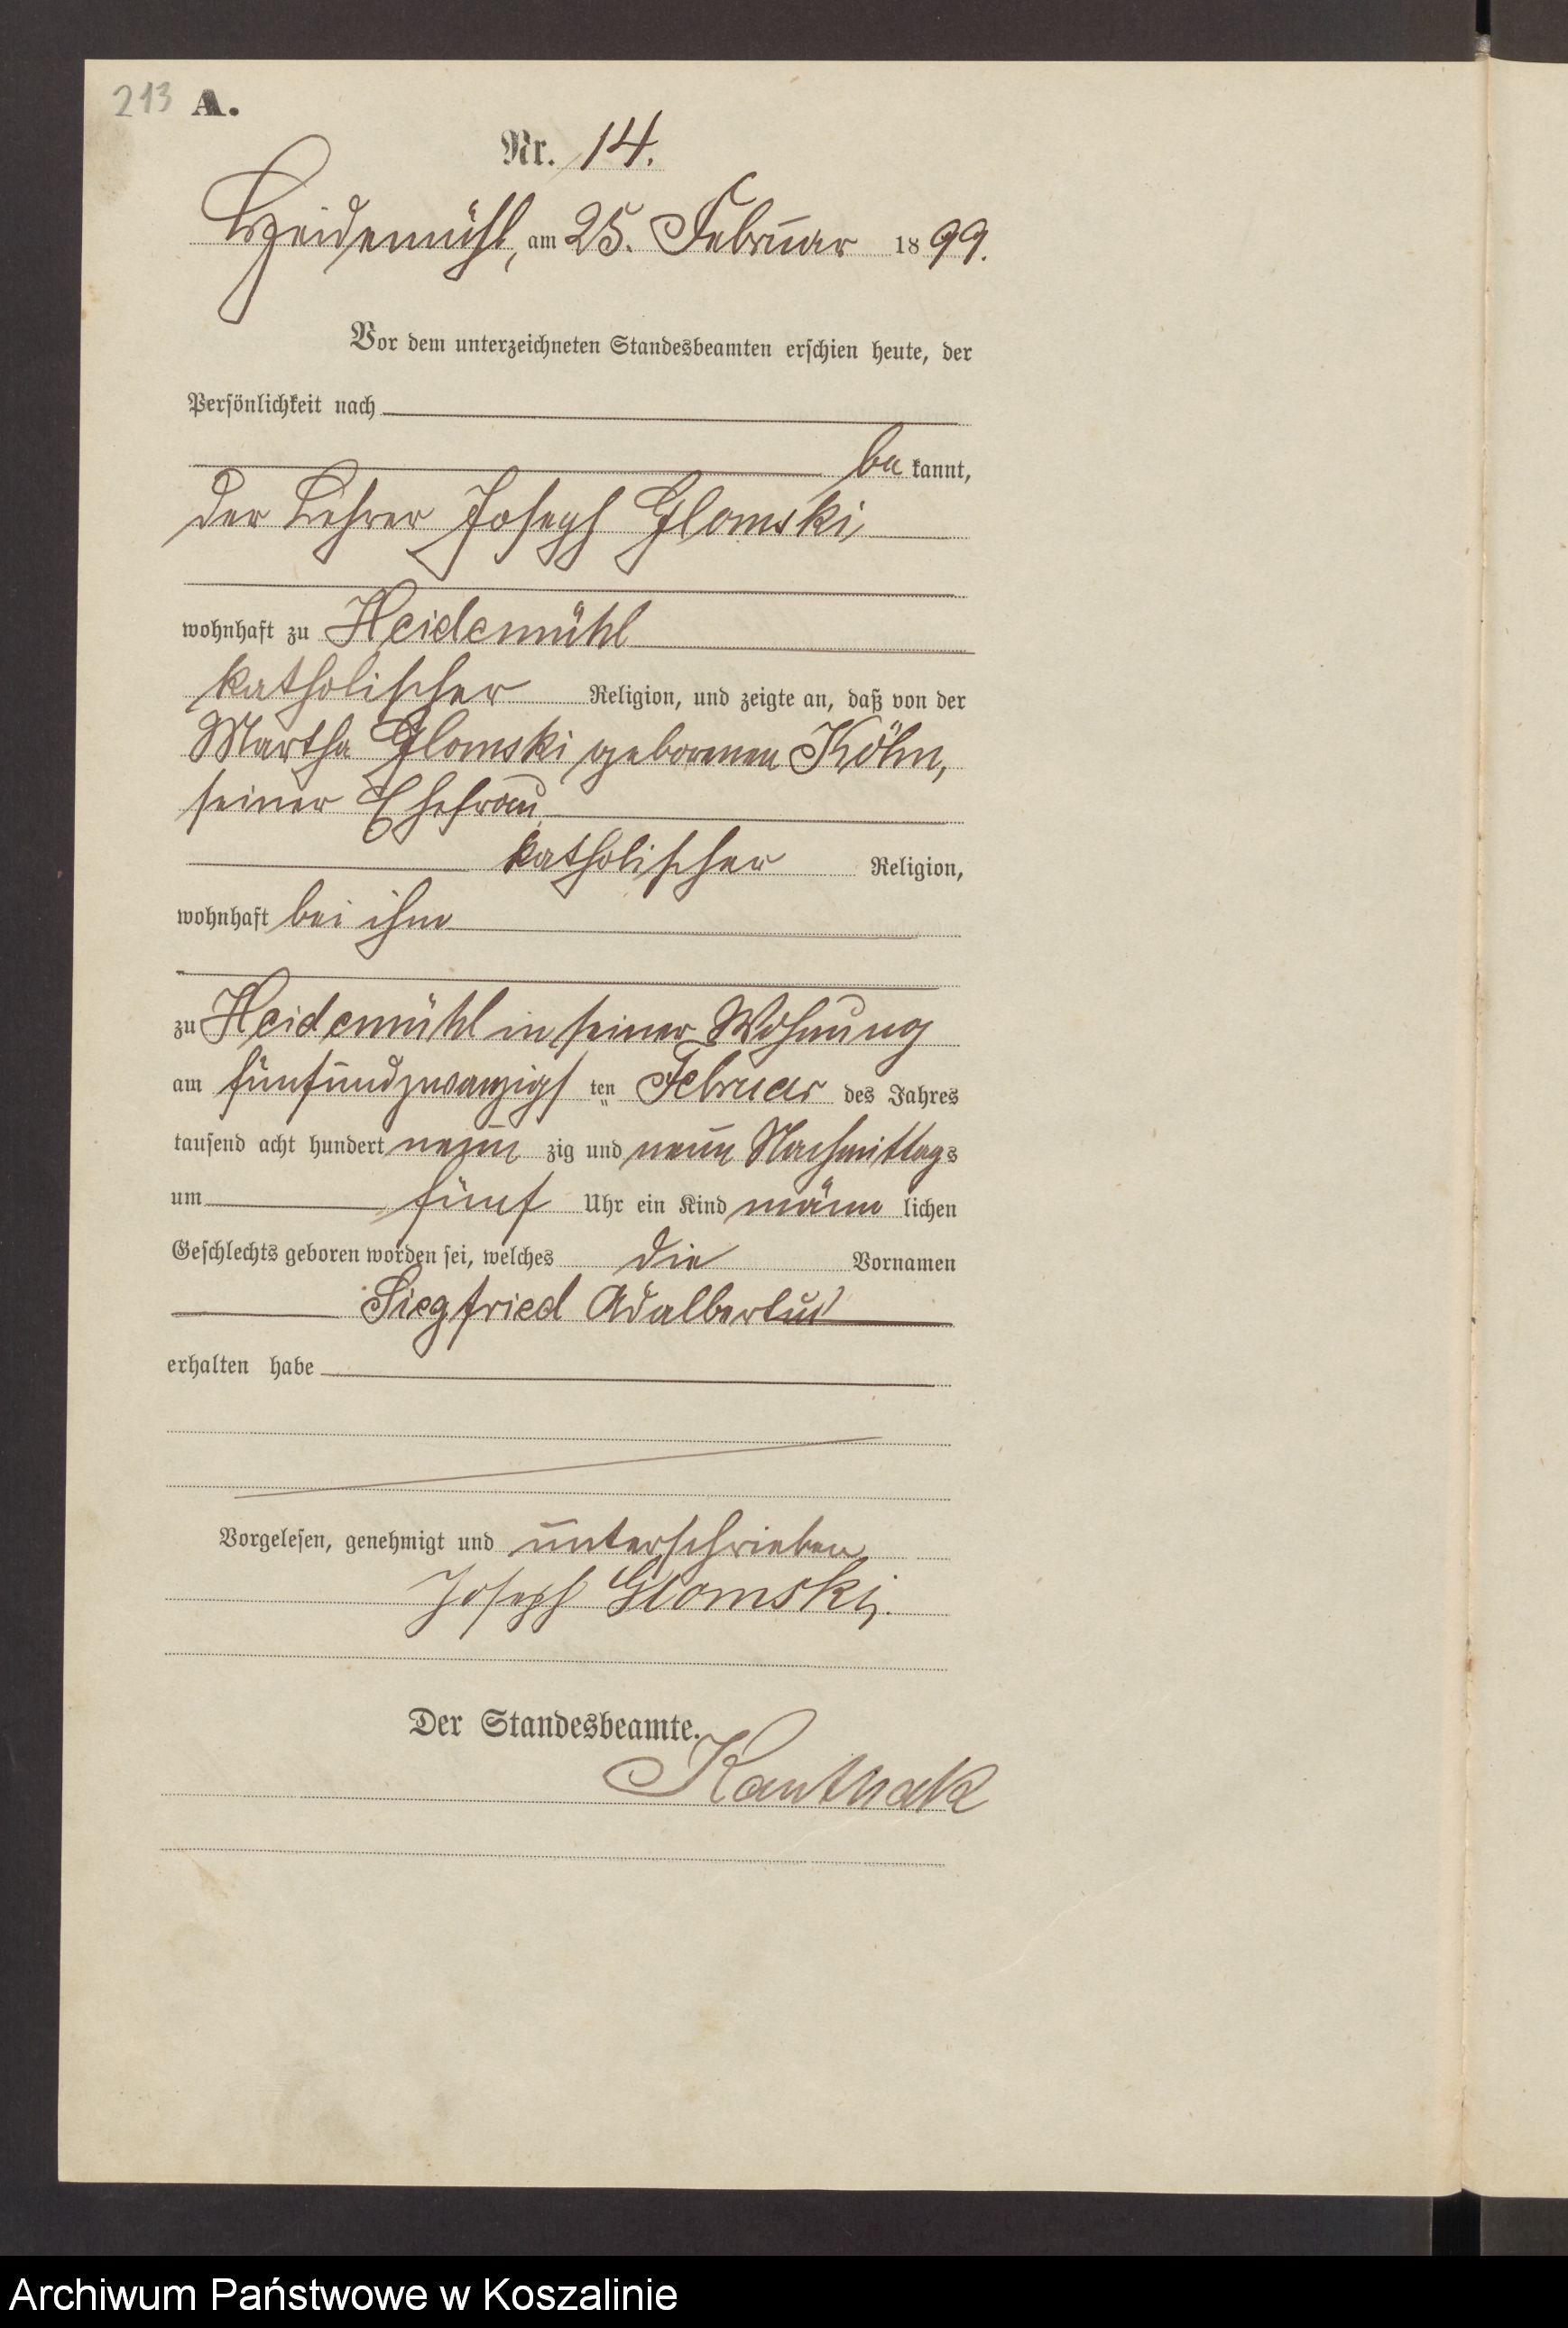 213 A.
Nr. 14.
Heidemühl, am 25. Februar 1899.
Vor dem unterzeichneten Standesbeamten erschien heute, der
Persönlichkeit nach
be kannt,
der Lehrer Joseph Glomski,
wohnhaft zu Heidemühl
katholischer Religion, und zeigte an, daß von der
Martha Glomski geborenen Köhn,
seiner Ehefrau
katholischer Religion,
wohnhaft bei ihm
zu Heidemühl in seiner Wohnung
am fünfundzwanzigs ten Februar des Jahres
tausend acht hundert neun zig und neun Nachmittags
um fünf Uhr ein Kind männ lichen
Geschlechts geboren worden sei, welches die Vornamen
Siegfried Adalbertus
erhalten habe
Vorgelesen, genehmigt und unterschrieben
Joseph Glomski.
Der Standesbeamte.
Kanthak
Archiwum Państwowe w Koszalinie